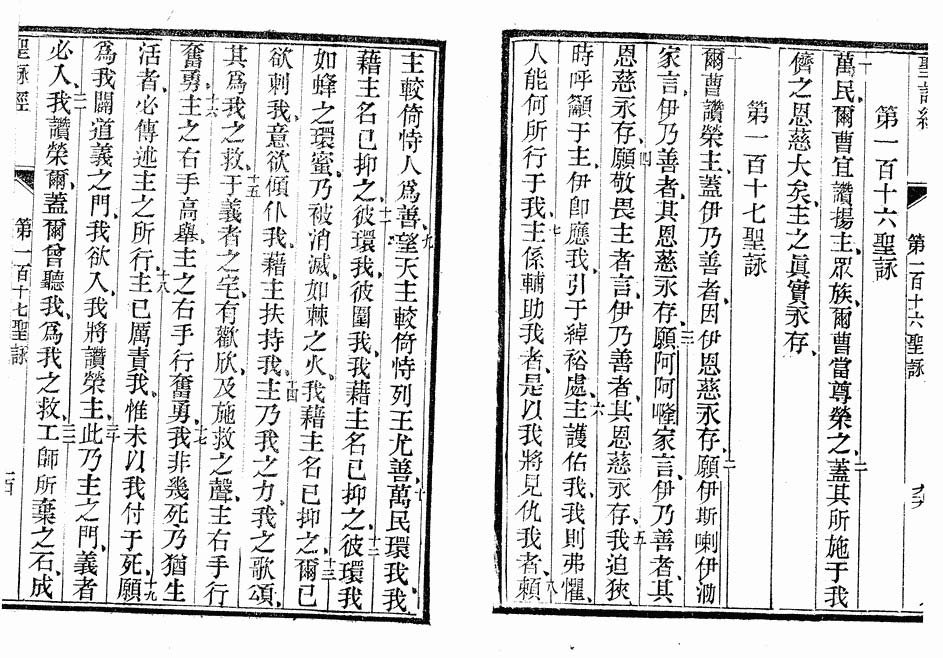 聖詠經
第一百十六聖詠
第一百十六聖詠
一萬民爾曹宜讚揚主、眾族、爾曹當尊榮之、二蓋其所施于我
儕之恩慈大矣、主之眞實永存、
第一百十七聖詠
一爾曹讚榮主、蓋伊乃善者、因伊恩慈永存、二願伊斯喇伊泐
家言、伊乃善者、其恩慈永存、三願阿阿㘄家言、伊乃善者、其
恩慈永存、四願敬畏主者言、伊乃善者、其恩慈永存、五我迫狹
時呼籲于主、伊卽應我、引于綽裕處、六主護佑我、我則弗懼、
人能何所行于我、七主係輔助我者、是以我將見仇我者、八賴
主較倚恃人爲善、九望天主較倚恃列王尤善、十萬民環我、我
藉主名已抑之、十一彼環我、彼圍我、我藉主名已抑之、十二彼環我
如蜂之環蜜、乃被消滅、如棘之火、我藉主名已抑之、十三爾已
欲刺我、意欲傾仆我、藉主扶持我、十四主乃我之力、我之歌頌、
其爲我之救、十五于義者之宅、有歡欣、及施救之聲、主右手行
奮勇、十六主之右手高舉、主之右手行奮勇、十七我非幾死、乃猶生
活者、必傳述主之所行、十八主已厲責我、惟未以我付于死、十九願
爲我闢道義之門、我欲入、我將讚榮主、二十此乃主之門、義者
必入、二一我讚榮爾、蓋爾曾聽我、爲我之救、二二工師所棄之石、成
聖詠經
第一百十七聖詠